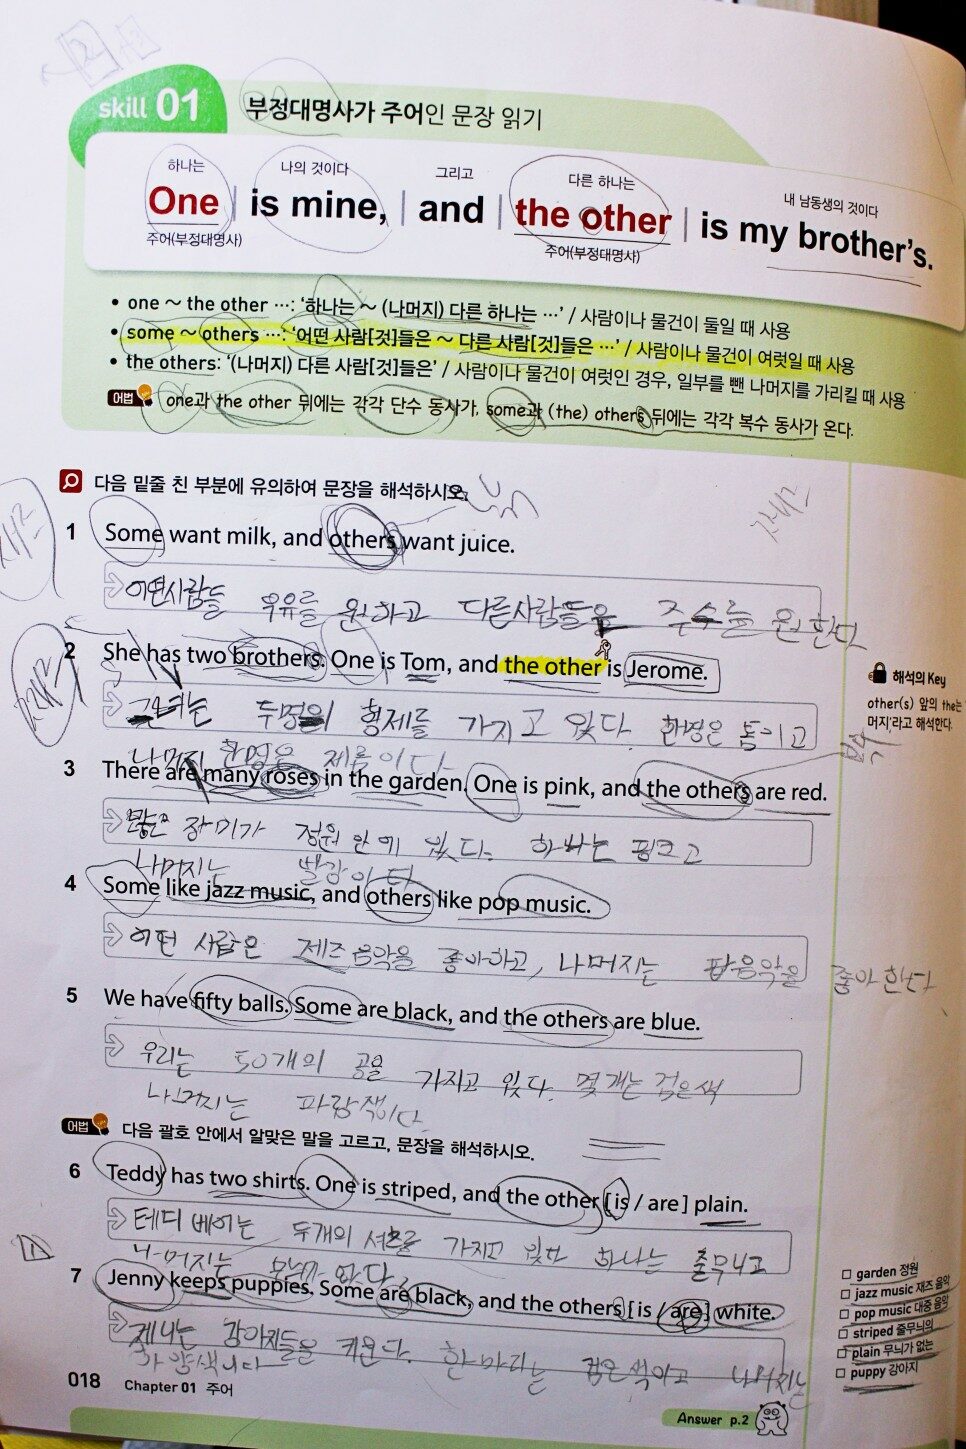 skill 01
부정대명사가 주어인 문장 읽기
하나는 나의 것이다 그리고 다른 하나는 내 남동생의 것이다
One | is mine, | and | the other | is my brother's.
주어(부정대명사) 주어(부정대명사)
• one ~ the other …: '하나는 ~ (나머지) 다른 하나는 …' / 사람이나 물건이 둘일 때 사용
• some ~ others …: '어떤 사람[것]들은 ~ 다른 사람[것]들은 …' / 사람이나 물건이 여럿일 때 사용
• the others: '(나머지) 다른 사람[것]들은' / 사람이나 물건이 여럿인 경우, 일부를 뺀 나머지를 가리킬 때 사용
어법 one과 the other 뒤에는 각각 단수 동사가, some과 (the) others 뒤에는 각각 복수 동사가 온다.
다음 밑줄 친 부분에 유의하여 문장을 해석하시오.
1 Some want milk, and others want juice.
어떤사람들 우유를 원하고 다른사람들은 주수를 원한다
2 She has two brothers. One is Tom, and the other is Jerome.
그녀는 두명의 형제를 가지고 있다. 한명은 톰이고
나머지 한명은 제롬이다
해석의 Key
other(s) 앞의 the는
머지'라고 해석한다.
3 There are many roses in the garden. One is pink, and the others are red.
많은 장미가 정원 안에 있다. 하나는 핑크고
나머지는 빨강이다
4 Some like jazz music, and others like pop music.
어떤 사람은 제즈 음악을 좋아하고, 나머지는 팝음악을 좋아한다
5 We have fifty balls. Some are black, and the others are blue.
우리는 50개의 공을 가지고 있다. 몇개는 검은색
나머지는 파랑색이다
어법 다음 괄호 안에서 알맞은 말을 고르고, 문장을 해석하시오.
6 Teddy has two shirts. One is striped, and the other [is / are] plain.
테디 베어는 두개의 셔츠를 가지고 있다 하나는 줄무니고
나머지는
7 Jenny keeps puppies. Some are black, and the others [is / are] white.
제니는 강아지들을 키운다. 한마리는 검은색이고 나머지는
하양색이다
garden 정원
jazz music 재즈 음악
pop music 대중 음악
striped 줄무늬의
plain 무늬가 없는
puppy 강아지
018 Chapter 01 주어
Answer p.2